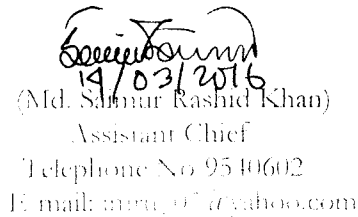 14/03/2016
(Md. Saimur Rashid Khan)
Assistant Chief
Telephone No 9540602
E mail: